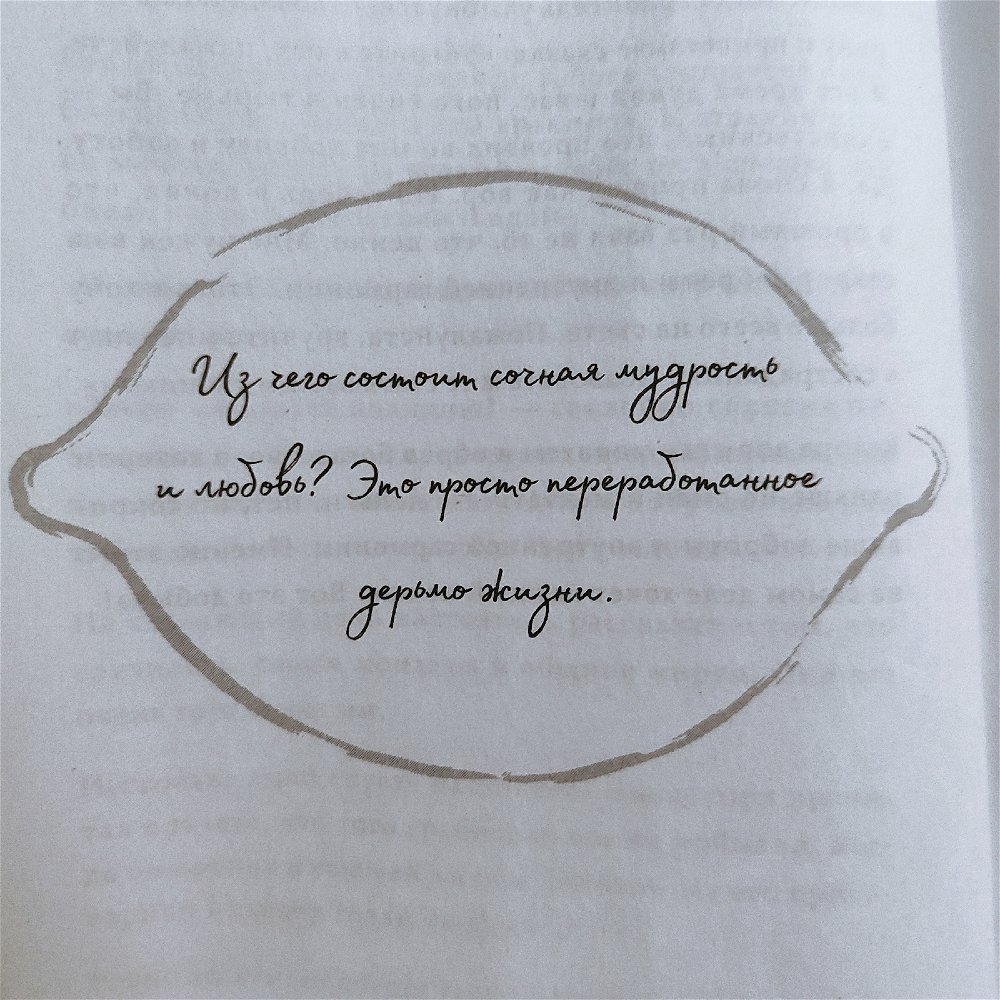 Из чего состоит сочная мудрость
и любовь? Это просто переработанное
дерьмо жизни.